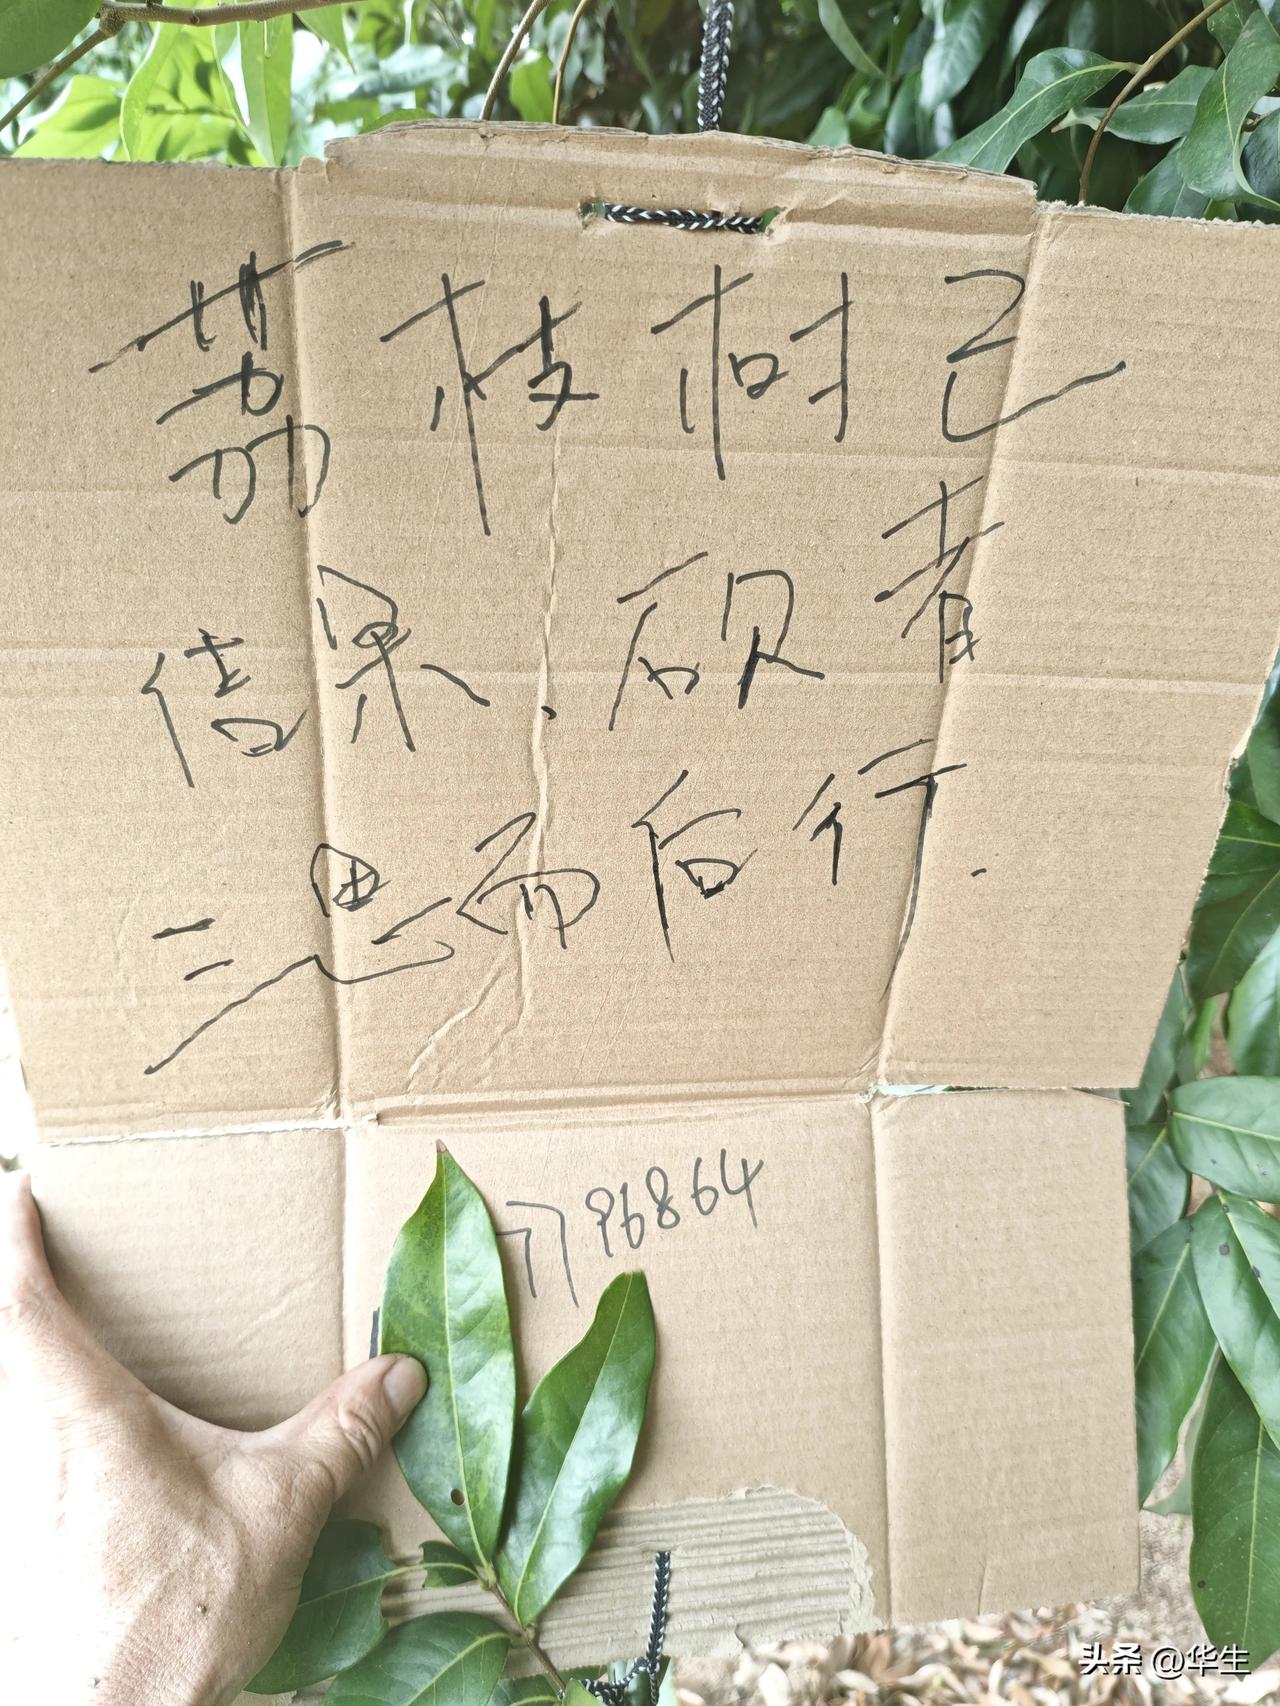 荔枝树已
结果、硕者
三思而后行.
7796864
头条 @华生